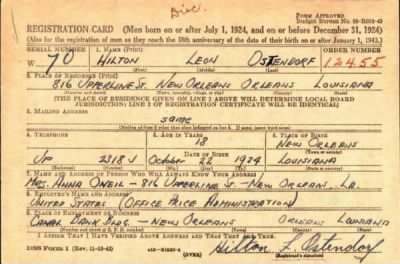 Disc.
FORM APPROVED
REGISTRATION CARD (Men born on or after July 1, 1924, and on or before December 31, 1924)
(Also for the registration of men as they reach the 18th anniversary of the date of their birth on or after January 1, 1943.)
SERIAL NUMBER 1. NAME (Print) ORDER NUMBER
W 70 HILTON LEON OSTENDORF 12455
2. PLACE OF RESIDENCE (Print)
816 UPPERLINE ST. NEW ORLEANS ORLEANS LOUISIANA
[THE PLACE OF RESIDENCE GIVEN ON LINE 2 ABOVE WILL DETERMINE LOCAL BOARD
JURISDICTION; LINE 2 OF REGISTRATION CERTIFICATE WILL BE IDENTICAL]
3. MAILING ADDRESS
SAME
4. TELEPHONE 5. AGE IN YEARS 6. PLACE OF BIRTH
18 NEW ORLEANS
DATE OF BIRTH
UP 2318J OCTOBER 26 1924 LOUISIANA
7. NAME AND ADDRESS OF PERSON WHO WILL ALWAYS KNOW YOUR ADDRESS
MRS. ANNA ONEIL - 816 UPPERLINE ST - NEW ORLEANS, LA.
8. EMPLOYER'S NAME AND ADDRESS
UNITED STATES (OFFICE PRICE ADMINISTRATION)
9. PLACE OF EMPLOYMENT OR BUSINESS
CANAL BANK BLDG. - NEW ORLEANS ORLEANS LOUISIANA
I AFFIRM THAT I HAVE VERIFIED ABOVE ANSWERS AND THAT THEY ARE TRUE.
DSS Form 1 (OVER) Hilton L. Ostendorf
(Registrant's signature)